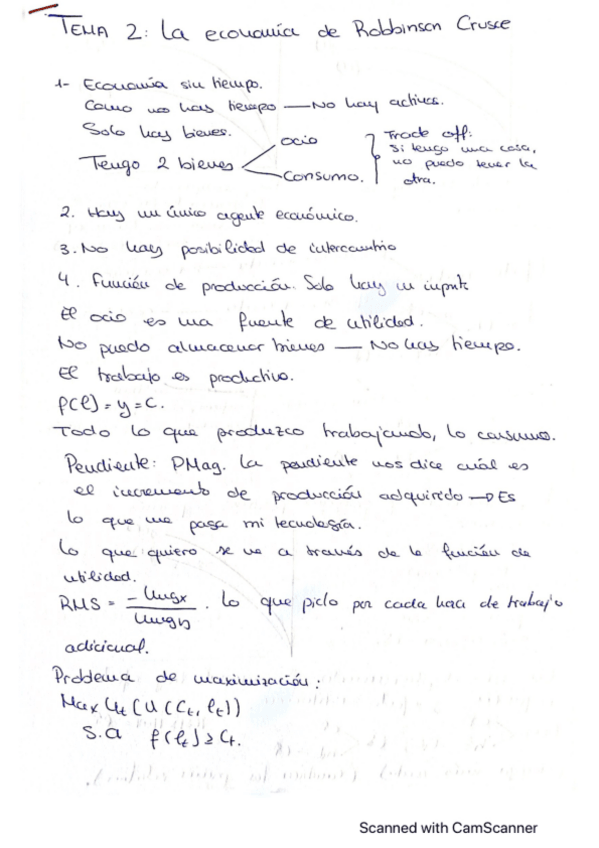 TEMA 2: La economía de Robbinson Crusoe
1- Economía sin tiempo.
Como no hay tiempo — No hay activos.
Solo hay bienes.
Tengo 2 bienes
ocio
Consumo.
Trade off:
Si tengo una cosa,
no puedo tener la
otra.
2. Hay un único agente económico.
3. No hay posibilidad de intercambio
4. Función de producción. Solo hay un input
El ocio es una fuente de utilidad.
No puedo almacenar bienes — No hay tiempo.
El trabajo es productivo.
f(l) = y = c.
Todo lo que produzco trabajando, lo consumo.
Pendiente: PMag. La pendiente nos dice cuál es
el incremento de producción adquirido → Es
lo que me paga mi tecnología.
Lo que quiero se ve a través de la función de
utilidad.
RMS = -Umgx / Umgy . Lo que pido por cada hora de trabajo
adicional.
Problema de maximización:
Max (U(Ct, lt))
S.a f(lt) ≥ Ct.
Scanned with CamScanner